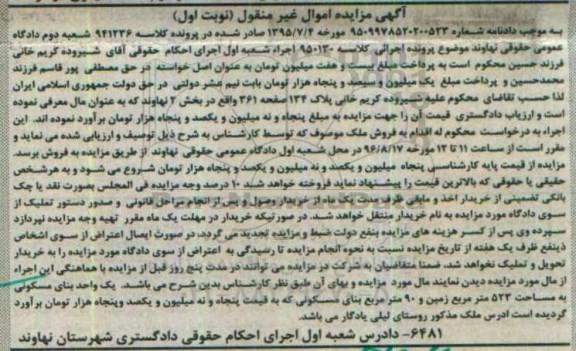 آگهی مزایده اموال غیر منقول (نوبت اول)
به موجب دادنامه شماره ۹۵۰۹۹۷۸۵۲۰۲۰۰۵۲۳ مورخه ۱۳۹۵/۷/۴ صادر شده در پرونده کلاسه ۹۴۱۲۳۶ شعبه دوم دادگاه
عمومی حقوقی نهاوند موضوع پرونده اجرائی کلاسه ۹۵۰۱۳۰ اجراء شعبه اول اجرای احکام حقوقی آقای شیروده کریم خانی
فرزند حسین محکوم است به پرداخت مبلغ سی و هفت میلیون تومان به عنوان اصل خواسته در حق مصطفی پور قاسم فرزند
محمدحسین و پرداخت مبلغ یک میلیون و سیصد و پنجاه هزار تومان بابت نیم عشر دولتی در حق دولت جمهوری اسلامی ایران
لذا حسب تقاضای محکوم علیه شیروده کریم خانی پلاک ۱۳۴ صفحه ۳۶۱ واقع در بخش ۲ نهاوند که به عنوان مال معرفی نموده
است و ارزیاب دادگستری قیمت آن را جهت مزایده به مبلغ پنجاه و نه میلیون و یکصد و پنجاه هزار تومان برآورد نموده اند. این
اجراء به درخواست محکوم له اقدام به فروش ملک موصوف که توسط کارشناس به شرح ذیل توصیف و ارزیابی شده می نماید و
مقرر است از ساعت ۱۱ تا ۱۲ مورخه ۹۶/۸/۱۷ در محل شعبه اول دادگاه عمومی حقوقی نهاوند از طریق مزایده به فروش برسد.
مزایده از قیمت پایه کارشناسی پنجاه میلیون و یکصد و نه میلیون و یکصد و پنجاه هزار تومان شروع می شود و به هر شخص
حقیقی یا حقوقی که بالاترین قیمت را پیشنهاد نماید فروخته خواهد شد ۱۰ درصد وجه مزایده فی المجلس بصورت نقد یا چک
بانکی تضمینی از خریدار اخذ و مابقی ظرف مدت یک ماه از خریدار وصول و پس از انجام مراحل قانونی و صدور دستور تملیک از
سوی دادگاه مورد مزایده به نام خریدار منتقل خواهد شد. در صورتیکه خریدار در مهلت یک ماه مقرر تهیه وجه مزایده نپردازد
سپرده وی پس از کسر هزینه های مزایده بنفع دولت ضبط و مزایده تجدید می گردد، در صورت ایصال اعتراض از سوی اشخاص
ذینفع ظرف یک هفته از تاریخ مزایده نسبت به نحوه انجام مزایده تا رسیدگی به اعتراض از سوی دادگاه مورد مزایده را به خریدار
تحویل و تملیک نخواهد شد. ضمنا متقاضیان به شرکت در مزایده می توانند در مدت پنج روز قبل از مزایده با هماهنگی این اجراء
از مال مورد مزایده دیدن نمایند مال مورد مزایده و بهای آن طبق نظر کارشناس بدین شرح می باشد. یک واحد بنای مسکونی
به مساحت ۵۲۳ متر مربع زمین و ۹۰ متر مربع بنای مسکونی که به قیمت پنجاه و نه میلیون و یکصد و پنجاه هزار تومان برآورد
گردیده است ادرس ملک مذکور روستای لیلی یادگار می باشد.
۶۴۸۱- دادرس شعبه اول اجرای احکام حقوقی دادگستری شهرستان نهاوند